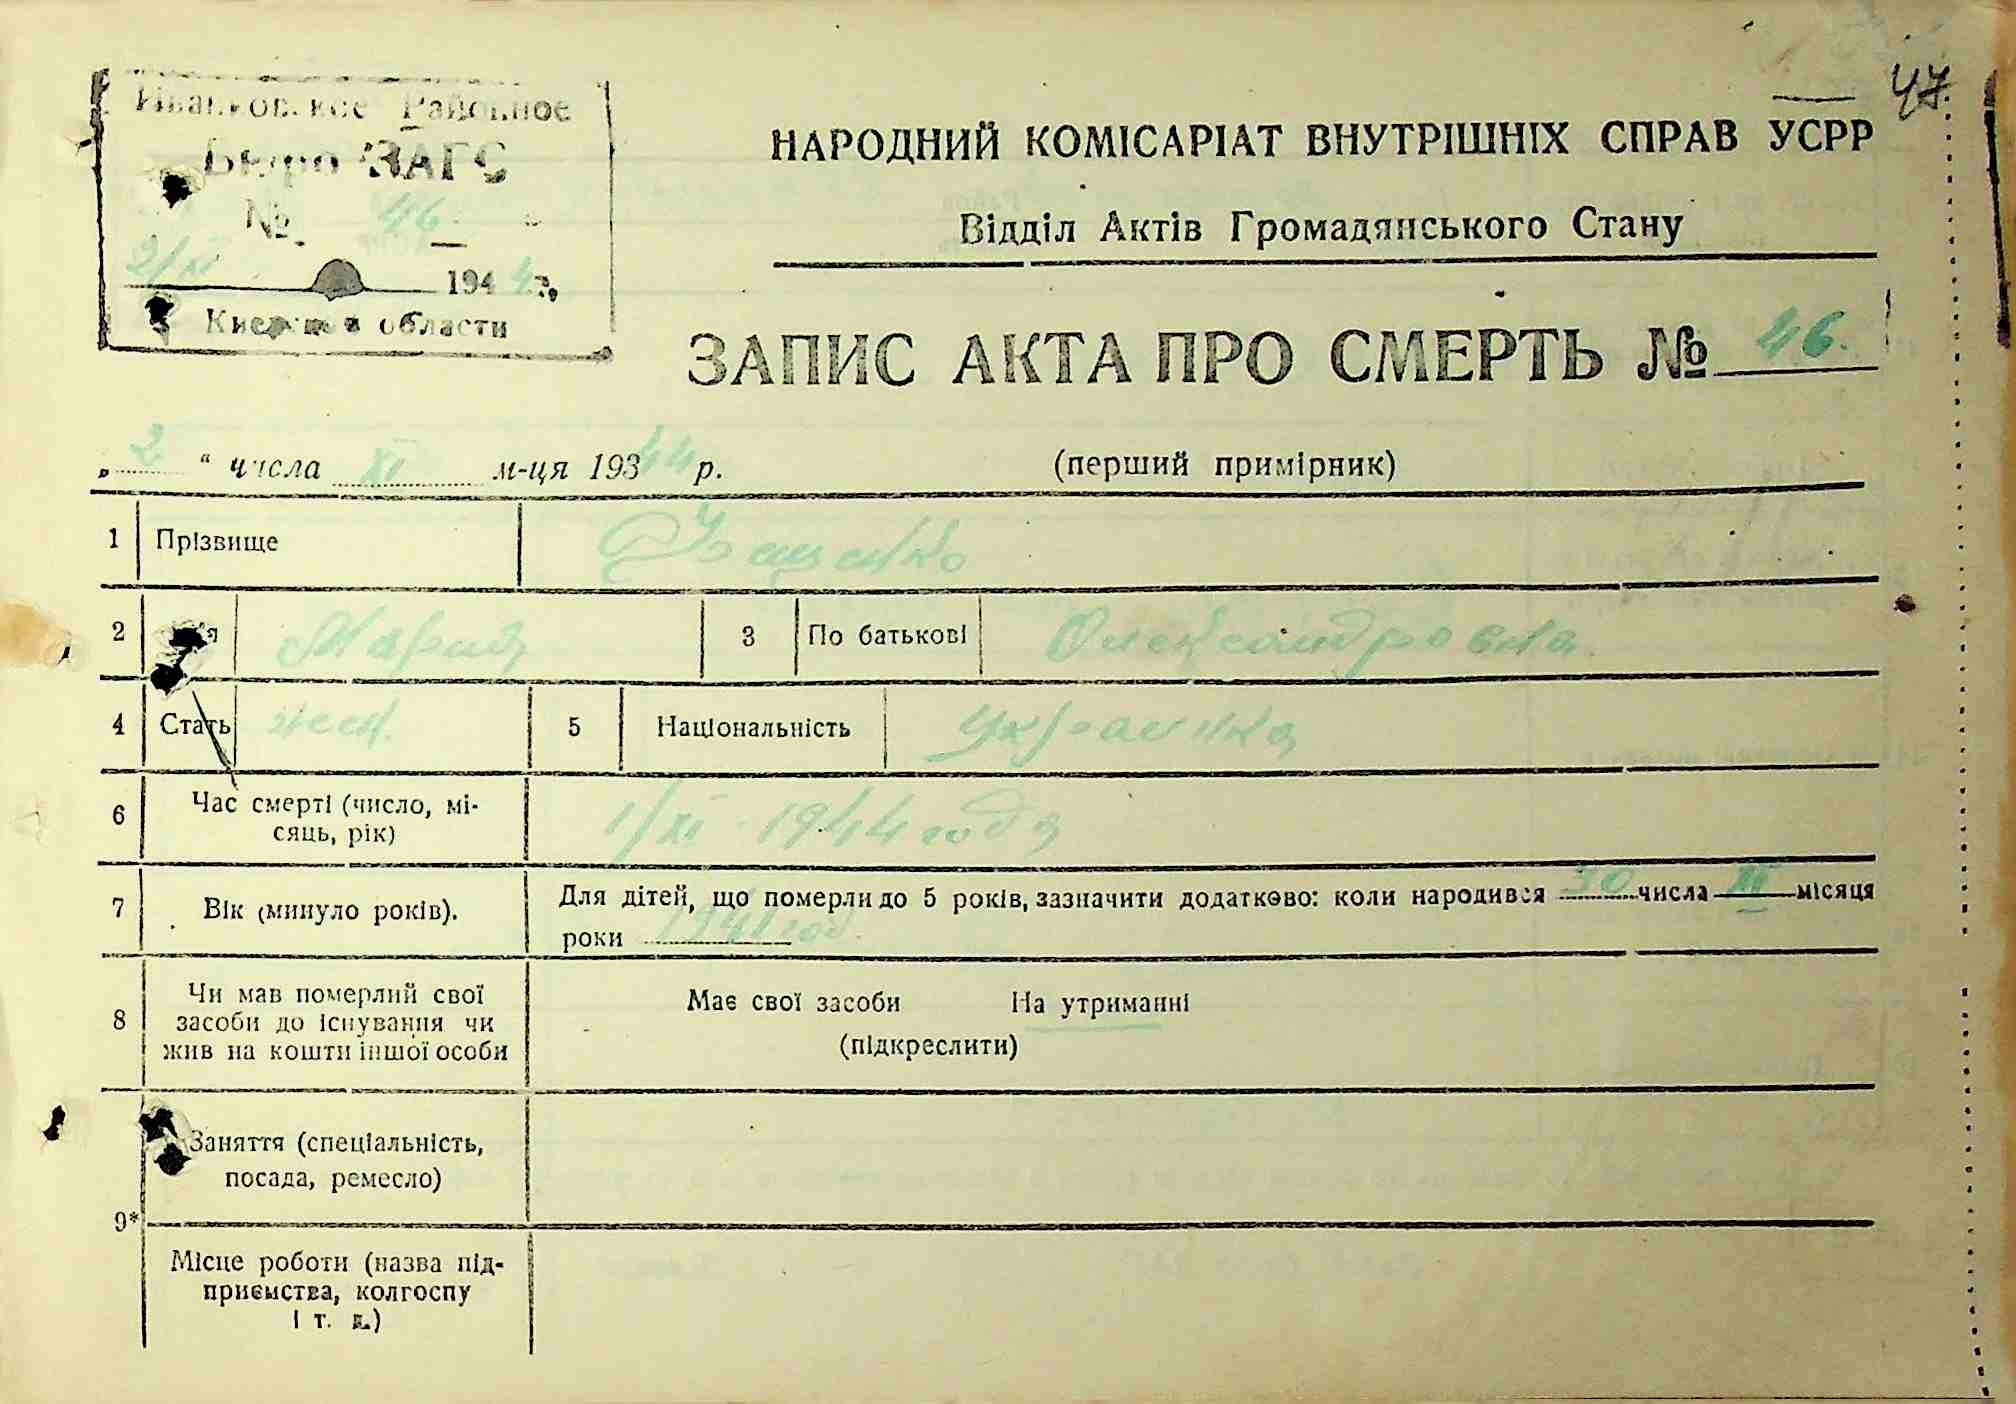 47
Иванковское Районное
Бюро ЗАГС
№ 46.
2/XI 1944 г.
Киевской области
НАРОДНИЙ КОМІСАРІАТ ВНУТРІШНІХ СПРАВ УСРР
Відділ Актів Громадянського Стану
ЗАПИС АКТА ПРО СМЕРТЬ № 46.
„ 2 “ числа XI м-ця 19344 р.
(перший примірник)
1 Прізвище
2 Ім'я Мария 3 По батькові Олександровна
4 Стать жен. 5 Національність Украинка
6 Час смерті (число, мі-
сяць, рік) 1/XI 1944 года
7 Вік (минуло років). Для дітей, що померли до 5 років, зазначити додатково: коли народився 30 числа місяця
роки 1941 год.
8 Чи мав померлий свої
засоби до існування чи
жив на кошти іншої особи
Має свої засоби На утриманні
(підкреслити)
9*
Заняття (спеціальність,
посада, ремесло)
Місце роботи (назва під-
приємства, колгоспу
і т. д.)